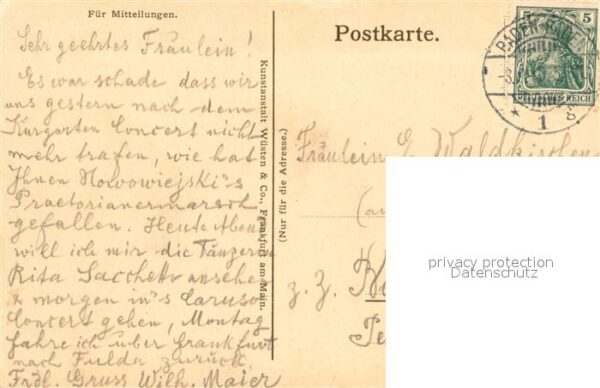 Für Mitteilungen.
Sehr geehrtes Fräulein!
Es war schade dass wir
uns gestern nach dem
Kurgarten Concert nicht
mehr trafen, wie hat
Ihnen Nowowiejski's
Praetorianermarsch
gefallen. Heute Aben
will ich mir die Tänzerin
Rita Sacchetto ansehe
& morgen in's Caruso
Concert gehen, Montag
fahre ich über Frankfurt
nach Fulda zurück
Frdl. Gruss Wilh. Maier
Kunstanstalt Wüsten & Co., Frankfurt am Main.
(Nur für die Adresse.)
Postkarte.
5 5
DEUTSCHES REICH
BADEN-BADEN
* 1 g.
Fräulein E. Waldkirchen
z. Z.
privacy protection
Datenschutz